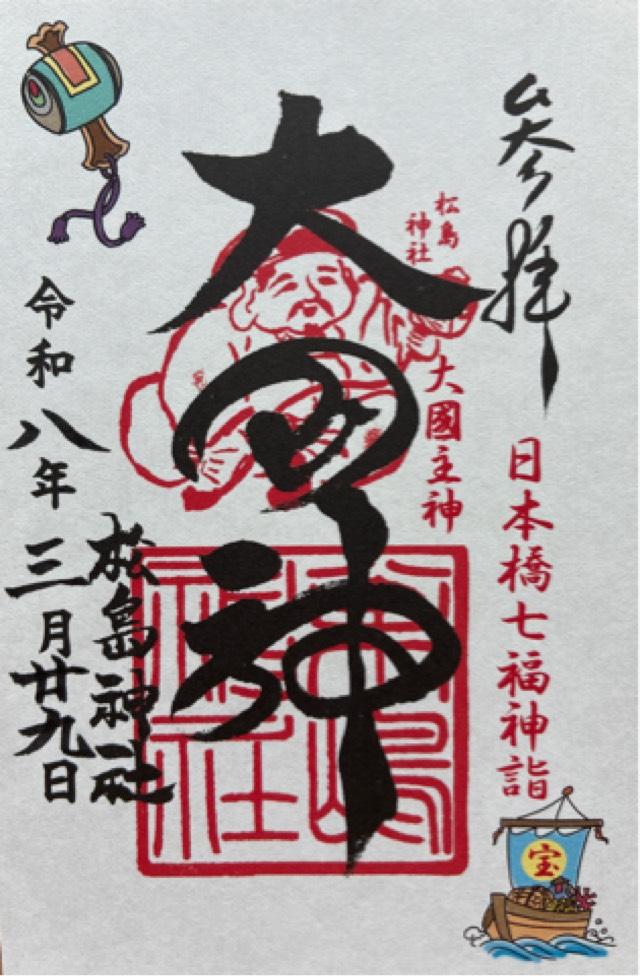 参拝
日本橋七福神詣
宝
松島
神社
大國主神
大国神
松嶋
神社
松島神社
令和八年三月廿九日